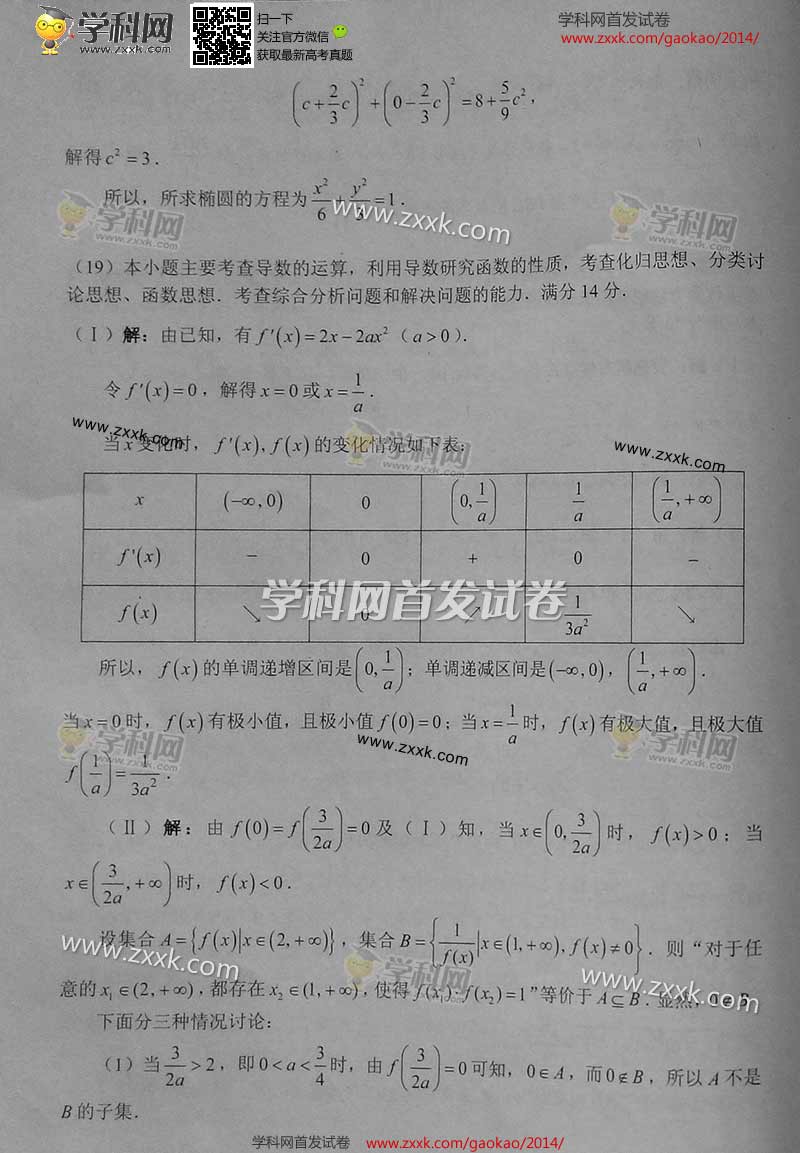 学科网
www.zxxk.com
扫一下
关注官方微信
获取最新高考真题
学科网首发试卷
www.zxxk.com/gaokao/2014/
(c+2/3c)²+(0-2/3c)²=8+5/9c²,
解得c²=3.
所以,所求椭圆的方程为x²/6+y²/3=1.
学科网
www.zxxk.com
学科网
(19)本小题主要考查导数的运算,利用导数研究函数的性质,考查化归思想、分类讨
论思想、函数思想.考查综合分析问题和解决问题的能力.满分14分.
(Ⅰ)解:由已知,有f′(x)=2x-2ax²(a>0).
令f′(x)=0,解得x=0或x=1/a.
www.zxxk.com
当x变化时,f′(x),f(x)的变化情况如下表:
学科网
www.zxxk.com
x (-∞,0) 0 (0,1/a) 1/a (1/a,+∞)
f'(x) - 0 + 0 -
f(x) ↘ 0 ↗ 1/3a² ↘
学科网首发试卷
所以,f(x)的单调递增区间是(0,1/a);单调递减区间是(-∞,0),(1/a,+∞).
当x=0时,f(x)有极小值,且极小值f(0)=0;当x=1/a时,f(x)有极大值,且极大值
学科网
www.zxxk.com
学科网
f(1/a)=1/3a².
(Ⅱ)解:由f(0)=f(3/2a)=0及(Ⅰ)知,当x∈(0,3/2a)时,f(x)>0;当
x∈(3/2a,+∞)时,f(x)<0.
设集合A={f(x)|x∈(2,+∞)},集合B={1/f(x)|x∈(1,+∞),f(x)≠0}.则“对于任
www.zxxk.com
学科网
www.zxxk.com
意的x₁∈(2,+∞),都存在x₂∈(1,+∞),使得f(x₁)·f(x₂)=1”等价于A⊆B.显然,
下面分三种情况讨论:
(1)当3/2a>2,即0<a<3/4时,由f(3/2a)=0可知,0∈A,而0∉B,所以A不是
B的子集.
学科网首发试卷
www.zxxk.com/gaokao/2014/